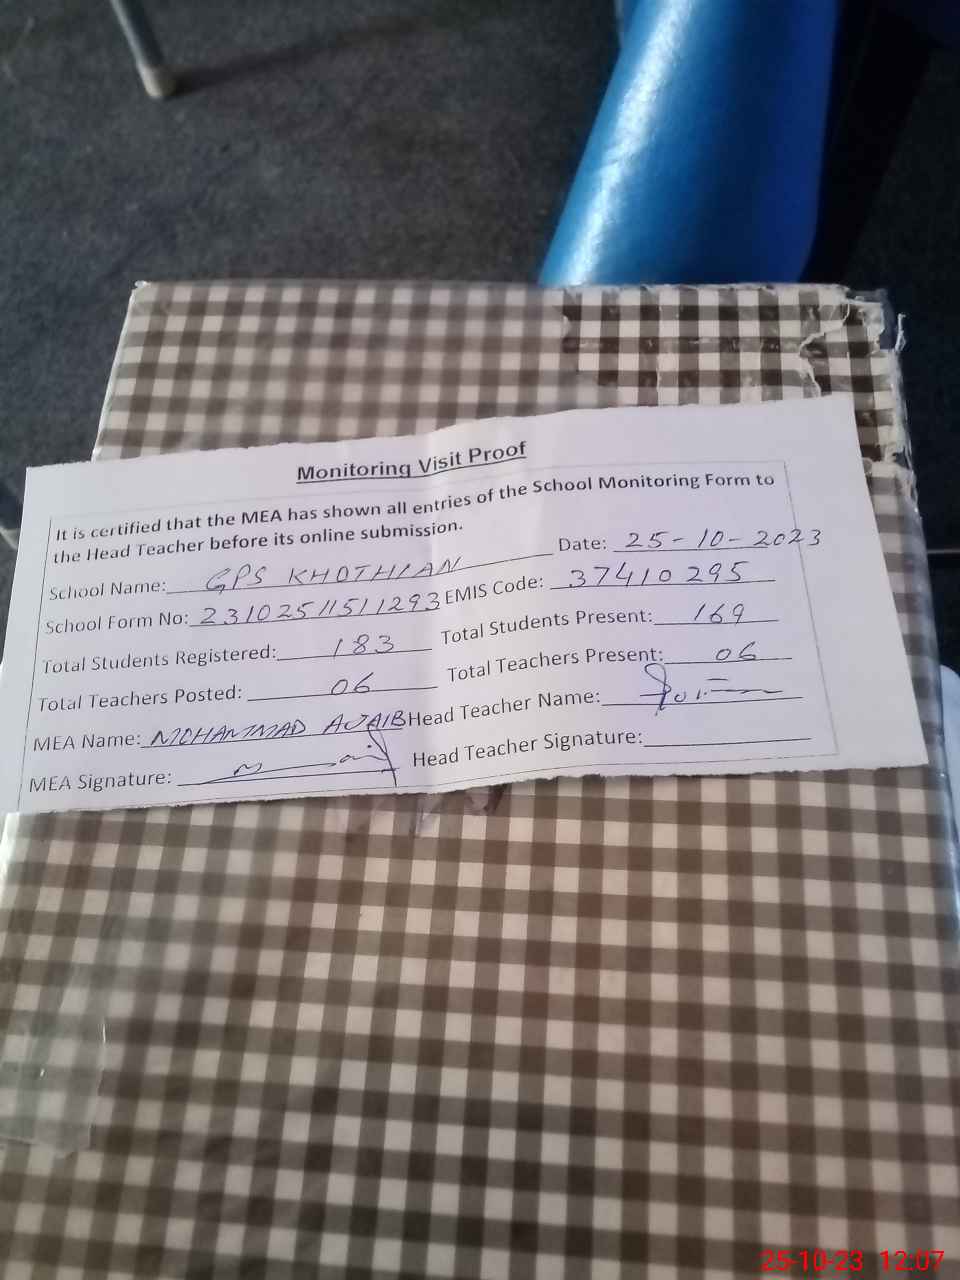 Monitoring Visit Proof
It is certified that the MEA has shown all entries of the School Monitoring Form to
the Head Teacher before its online submission.
School Name: GPS KHOTHIAN Date: 25-10-2023
School Form No: 23102511511293 EMIS Code: 37410295
Total Students Registered: 183 Total Students Present: 169
Total Teachers Posted: 06 Total Teachers Present: 06
MEA Name: MOHAMMAD AJAIB Head Teacher Name:
MEA Signature: Head Teacher Signature:
25-10-23 12:07